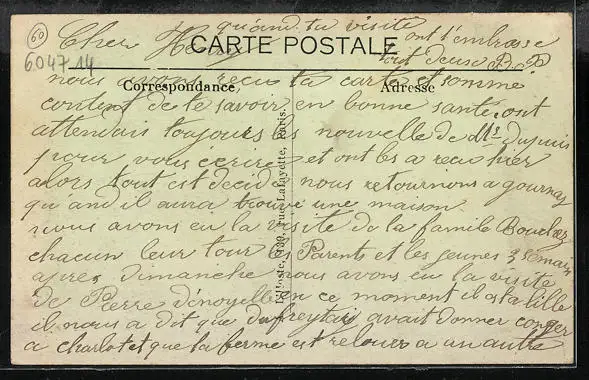 60
6047-14
quand tu visite
Cher Henri
ont t'embrasse
tout deux B. B
CARTE POSTALE
nous avons recu ta carte et somme
Correspondance
Adresse
content de te savoir en bonne santé, ont
attendais toujours les nouvelle de Mr Dupuis
pour vous écrire et ont les a recu hier
alors tout est decidé nous retournons a gournay
quand il aura trouvé une maison
nous avons eu la visite de la famile
chacun leur tour les Parents et les jeunes 3 semaines
apres dimanche nous avons eu la visite
de Pierre en ce moment il est a lille
il nous a dit que avait donner conger
a charlot et que la ferme est relouer a un autre
139, rue Lafayette, Paris.